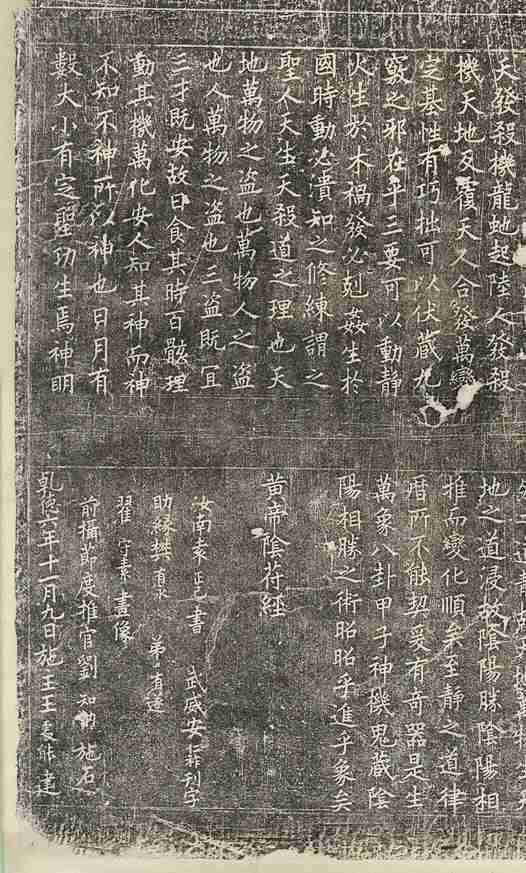 天發殺機龍虵起陸人發殺
機天地反覆天人合發萬變
定基性有巧拙可以伏藏九
竅之邪在乎三要可以動靜
火生於木禍發必剋姦生於
國時動必潰知之修練謂之
聖人天生天殺道之理也天
地萬物之盜也萬物人之盜
也人萬物之盜也三盜既宜
三才既安故曰食其時百骸理
動其機萬化安人知其神而神
不知不神所以神也日月有
數大小有定聖功生焉神明
地之道浸故陰陽勝陰陽相
推而變化順矣至靜之道律
曆所不能契爰有奇器是生
萬象八卦甲子神機鬼藏陰
陽相勝之術昭昭乎進乎象矣
黃帝陰符經
汝南袁正己書 武威安祚刊字
助緣樊 弟有遂
翟守素畫像
前攝節度推官劉知訥施石
乾德六年十一月九日施主王能建